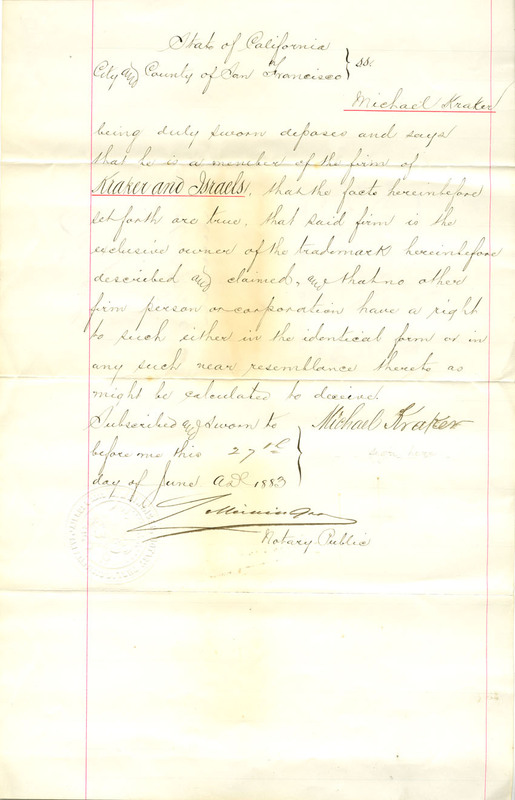 State of California
City and County of San Francisco } ss.
Michael Kraker
being duly sworn deposes and says
that he is a member of the firm of
Kraker and Israels, that the facts hereinbefore
set forth are true, that said firm is the
exclusive owner of the trademark hereinbefore
described and claimed, and that no other
firm person or corporation have a right
to such either in the identical form or in
any such near resemblance thereto as
might be calculated to deceive.
Subscribed and sworn to
before me this 27th
day of June A.D. 1883
Michael Kraker
Notary Public